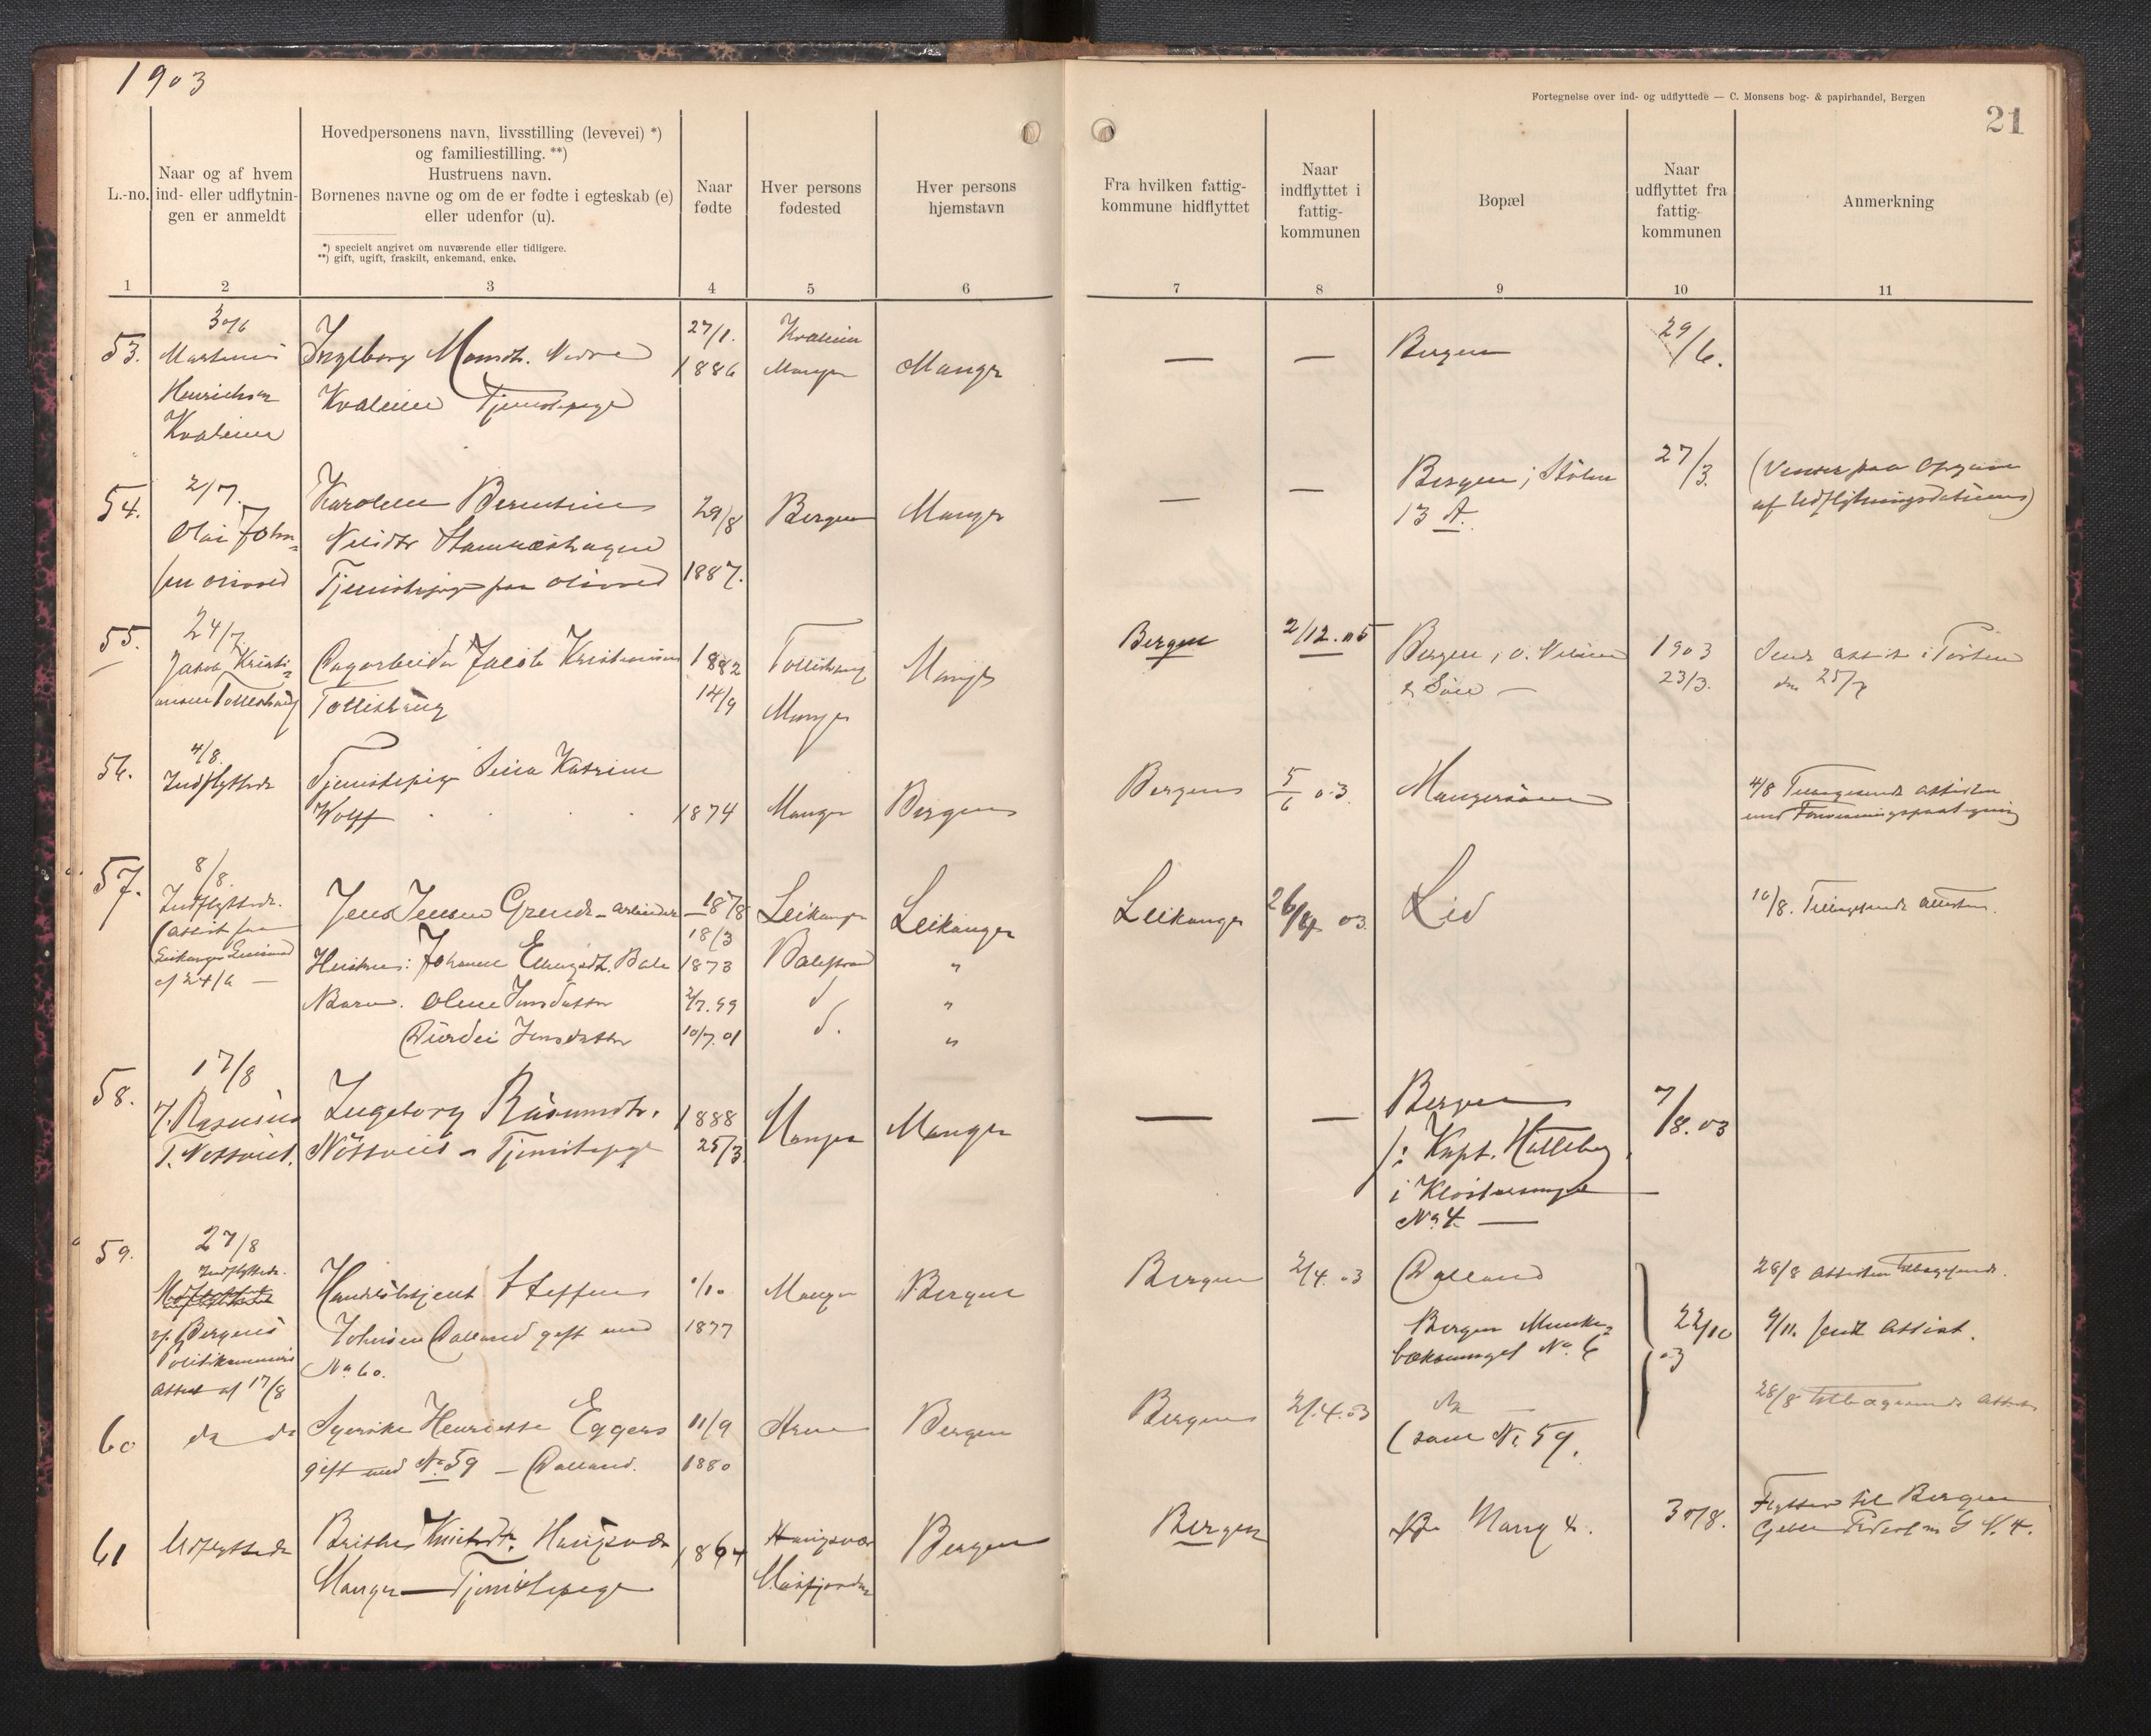 1903
Fortegnelse over ind- og udflyttede — C. Monsens bog- & papirhandel, Bergen
21
L.-no.
Naar og af hvem
ind- eller udflytnin-
gen er anmeldt
Hovedpersonens navn, livsstilling (levevei) *)
og familiestilling. **)
Hustruens navn.
Børnenes navne og om de er fødte i egteskab (e)
eller udenfor (u).
*) specielt angivet om nuværende eller tidligere.
**) gift, ugift, fraskilt, enkemand, enke.
Naar
fødte
Hver persons
fødested
Hver persons
hjemstavn
Fra hvilken fattig-
kommune hidflyttet
Naar
indflyttet i
fattig-
kommunen
Bopæl
Naar
udflyttet fra
fattig-
kommunen
Anmerkning
1 2 3 4 5 6 7 8 9 10 11
53.
30/6
Martinus
Henriksen
Kvaleim
Ingeborg Monsdt. Nedre
Kvaleim Tjenestepige
27/1.
1886
Kvaleim
Manger
Manger
— —
Bergen
29/6.
54.
2/7.
Olai John-
sen
Karoline Berentine
Nilsdtr
Tjenestepige paa
29/8
1887.
Bergen
Manger
— —
Bergen, Stølen
13 A.
27/3.
af Udflytningsdatums)
55.
24/7.
Jakob Kristi-
Dagarbeider Jacob Kristiansen
1882
14/9
Manger
Manger
Bergen
2/12.05
Bergen,
& Søn —
1903
23/3.
Sendt attest i Posten
den 25/7
56.
4/8.
Indflyttede
Tjenestepige Sina Katrine
Wolff
1874
Manger
Bergen
Bergen
5/6 03.
Mangersnes
4/8 Tilbagesendt attesten
57.
8/8.
Indflyttede.
(attest fra
Leikanger Lensmand
af 24/6 —
Jens Jensen Grende - arbeider
1878
18/3
Leikanger
Leikanger
Hustru: Johanne Ellingsdt. Bale
1873
Balestrand
"
Barn. Oline Jensdatter
2/7.99
d
"
Jensdatter
10/7.01
d.
"
Leikanger
26/4 03.
Lid
10/8. Tilbagesendt attesten.
58.
17/8
Rasmus
T. Nøttveit.
Ingeborg Rasmusdt.
Nøttveit - Tjenestepige
1888
25/3.
Manger
Manger
— —
Bergen
i Kapt. Hatleberg
i Klostersmuget —
No 4. —
7/8.03
59.
27/8
Indflyttede.
af Bergens
Politikammers
Attest af 17/8
Handelsbetjent Steffen
Johnsen Dalland gift med
No 60.
1877
Manger
Bergen
Bergen
2/4.03
Dalland
Bergen Munke-
bæksmuget No. 6
22/10
03
28/8 attesten tilbagesendt.
9/11. sendt attest.
60
do do
Syerske Henriette Eggers
gift med No 59 — Dalland.
11/9
1880
Bergen
Bergen
2/.4.03
do —
(som No 59.
28/8 tilbagesendt attest
61
Udflyttede
Brithe Knutsdtr. Haugsvær
Manger — Tjenestepige
1864
Haugsvær
Masfjorden
Bergen
Bergen
Mang
30/8.
Flytter til Bergen